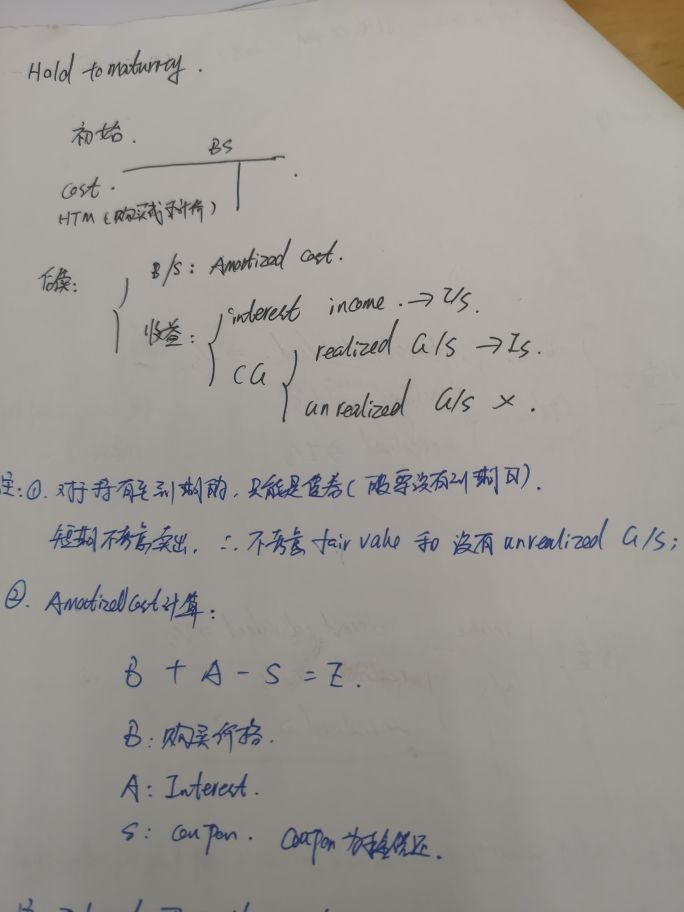 Hold to maturrey.
初始.
BS
cost.
HTM (购买或采计价)
后续:
B/S: Amortized cost.
收益:
interest income. → I/S.
CG
realized G/S → Is.
unrealized G/S ×.
注:①. 对于持有至到期的, 只能是债券(股票没有到期日).
短期不考虑卖出, ∴ 不考虑 fair value 和 没有 unrealized G/S;
②. Amortized Cost 计算:
B + A - S = E.
B: 购买价格.
A: Interest.
S: coupon. Coupon 为 偿还.